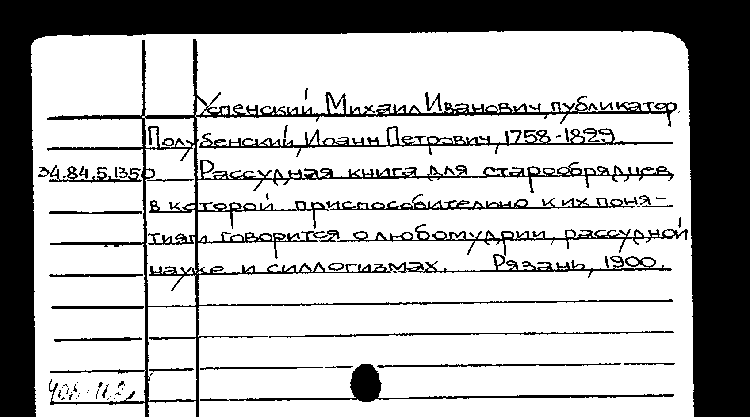 Успенский, Михаил Иванович, публикатор
Полубенский, Иоанн Петрович, 1758-1829.
34.84.5.1350 Рассудная книга для старообрядцев,
в которой приспособительно к их поня-
тиям говорится о любомудрии, рассудной
науке и силлогизмах. Рязань, 1900.